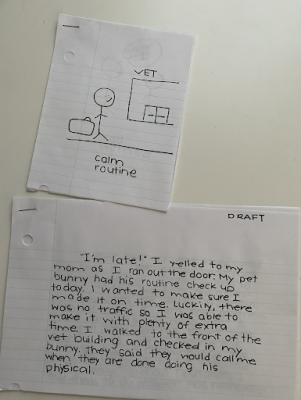 VET
calm
routine
DRAFT
"I'm late!" I yelled to my
mom as I ran out the door. My pet
bunny had his routine check up
today. I wanted to make sure I
made it on time. Luckily, there
was no traffic so I was able to
make it with plenty of extra
time. I walked to the front of the
vet building and checked in my
bunny. They said they would call me
when they are done doing his
physical.